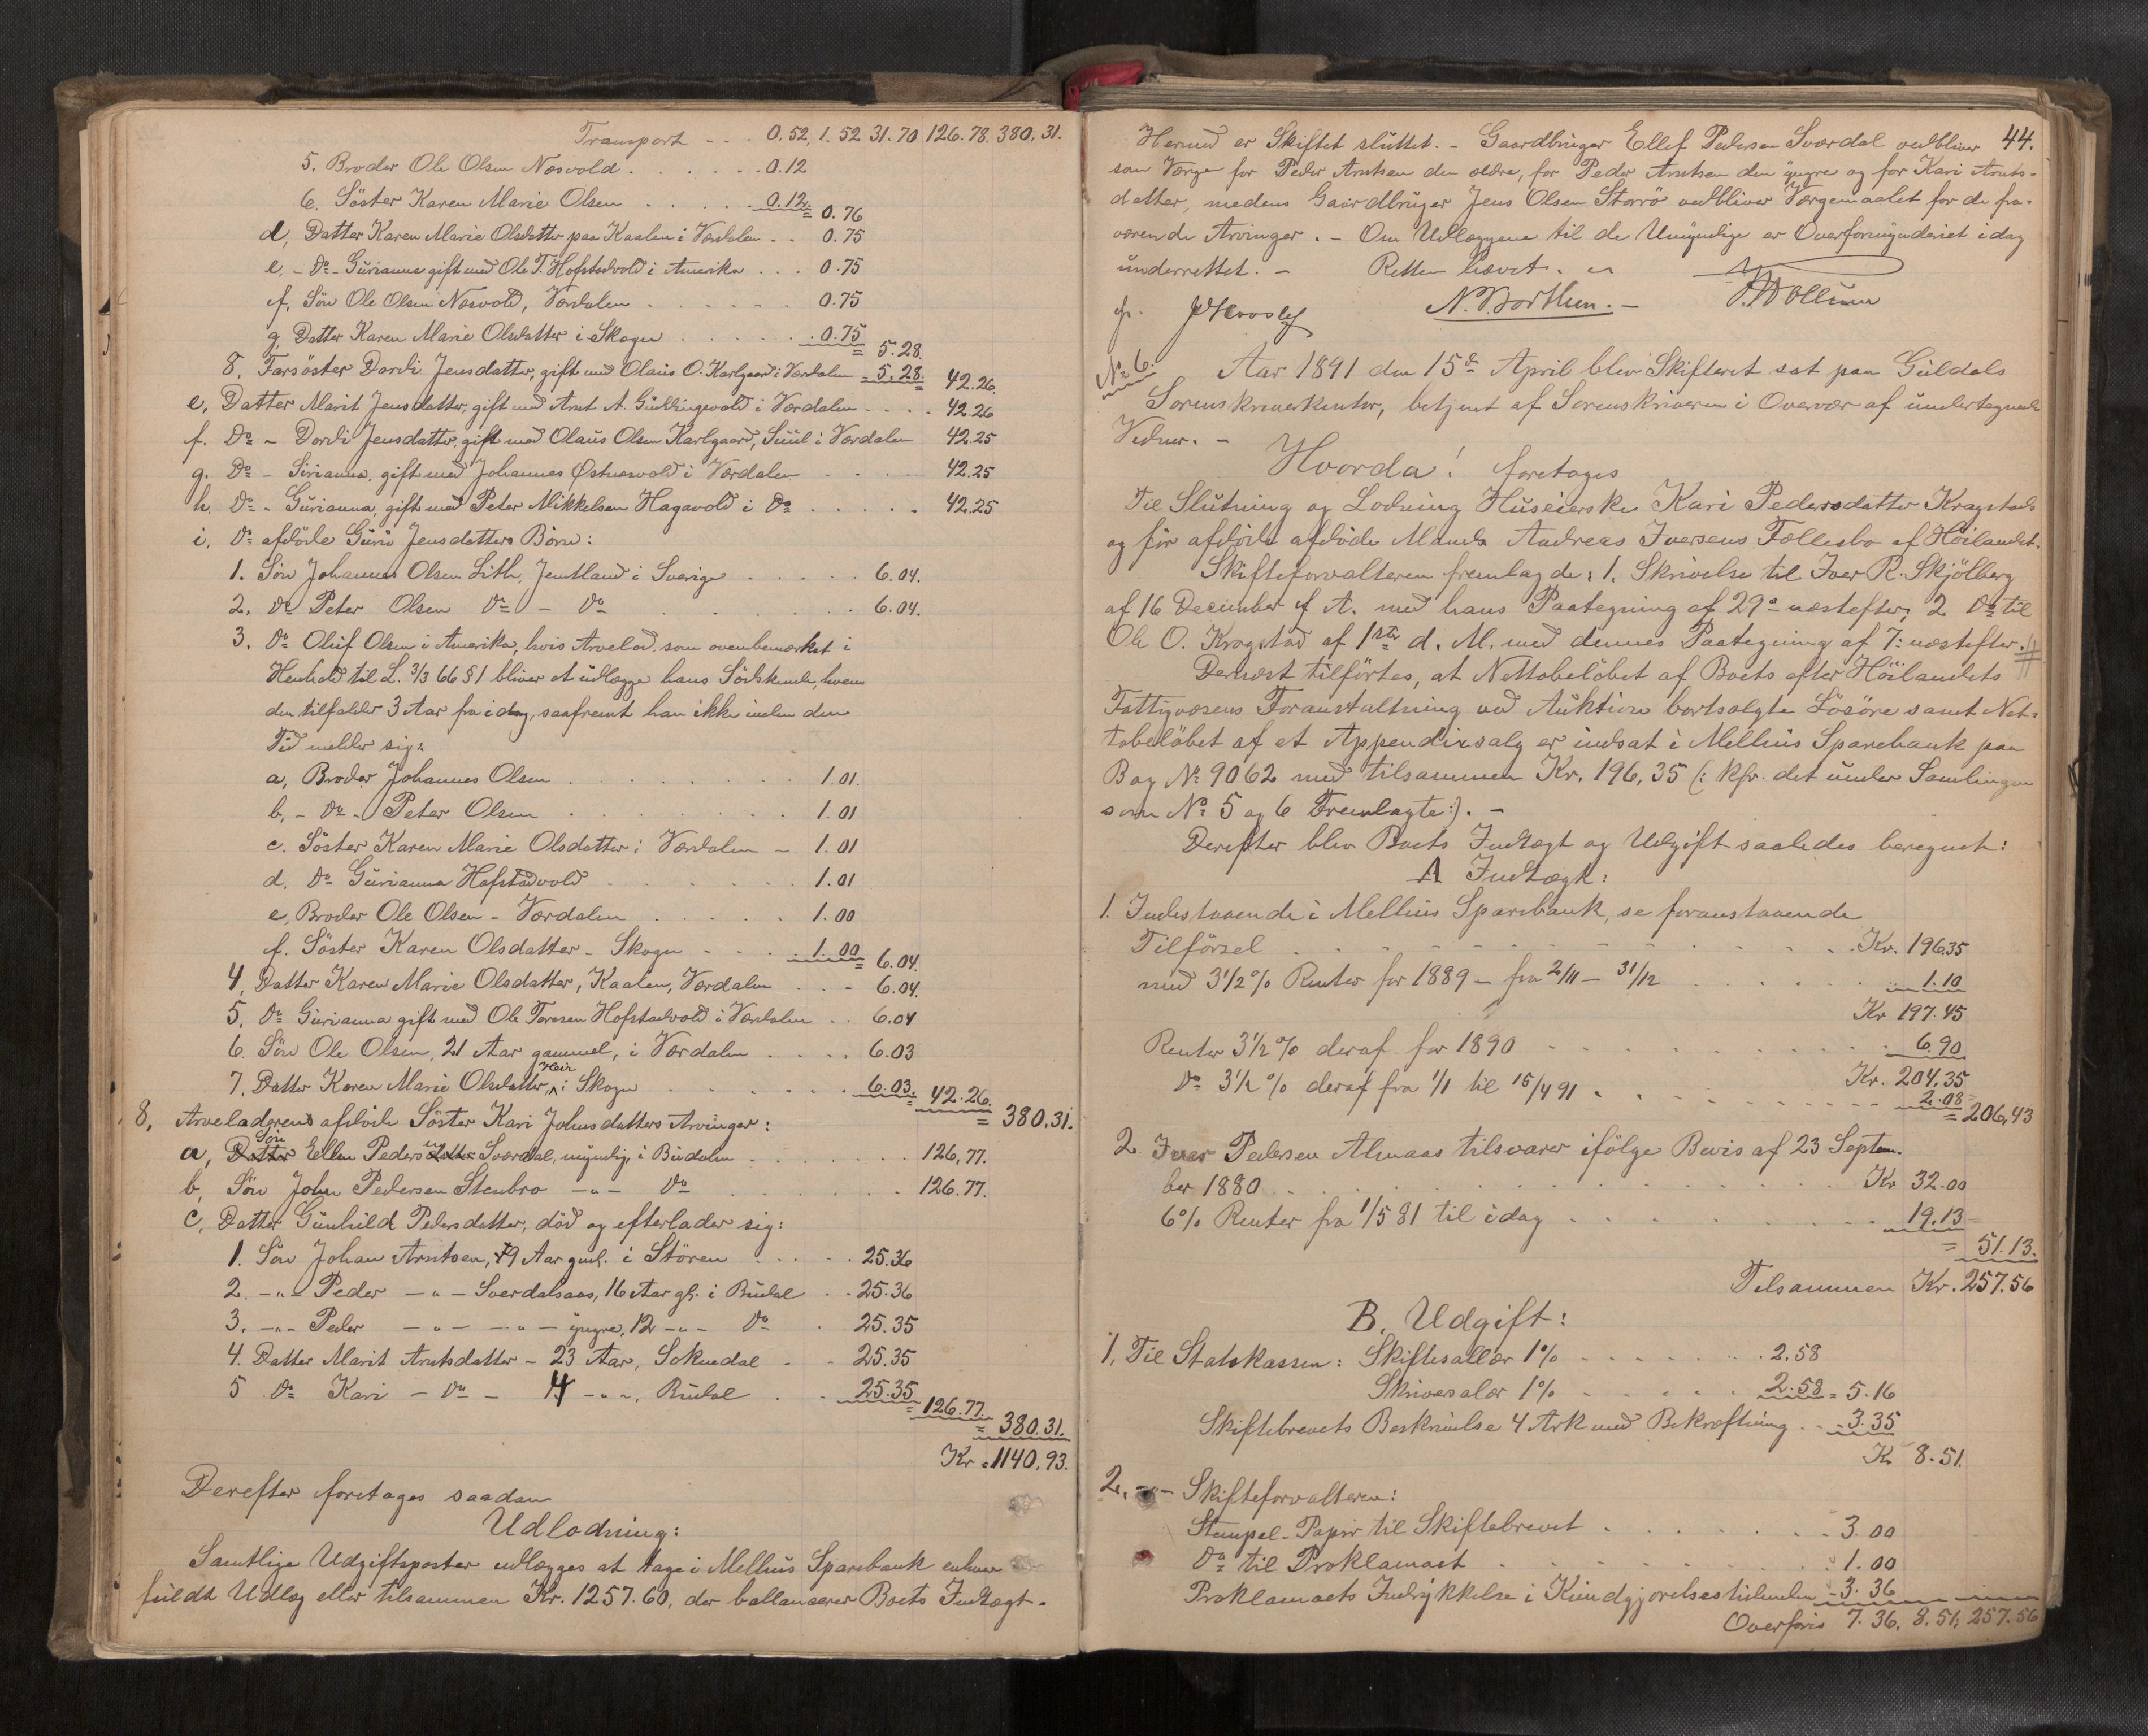 Transport - - - 0.52, 1.52 31.70 126.78. 380.31.
5. Broder Ole Olsen Næsvold . . . . . . 0.12
6. Söster Karen Marie Olsen . . . . . 0.12 = 0.76
d, Datter Karen Marie Olsdatter paa Kaalen i Værdalen . . 0.75
e, - Do - Gurianna gift med Ole T. Hofstadvold i Amerika . . . 0.75
f, Sön Ole Olsen Næsvold, Værdalen . . . . . . 0.75
g, Datter Karen Marie Olsdatter i Skogn . . . . . . 0.75 = 5.28.
8. Farsöster Dordi Jensdatter, gift med Olaus O. Karlgaard i Værdalen = 5.28. 42.26
e, Datter Marit Jensdatter, gift med Arnt A. Gudingsvold i Værdalen - - - . 42.26
f. Do - Dordi Jensdatter, gift med Olaus Olsen Karlgaard, Suul i Værdalen 42.25
g. Do - Sirianna, gift med Johannes Østnæsvold i Værdalen . . . 42.25
h. Do - Gurianna, gift med Peter Mikkelsen Hagavold i Do . . . . . 42.25
i, Do afdöde Guru Jensdatters Börn:
1. Sön Johannes Olsen Lith, Jemtland i Sverige . . . . . 6.04.
2. Do Peter Olsen Do - Do . . . . . . 6.04.
3. Do Oluf Olsen i Amerika, hvis Arvelod, som ovenbemærket i
Henhold til L. 3/3 66 § 1 bliver at udlægge hans Södskende, hvem
den tilfalder 3 Aar fra idag, saafremt han ikke inden den
Tid melder sig:
a, Broder Johannes Olsen . . . . . . . . 1.01.
b, - Do - Peter Olsen . . . . . . . . 1.01
c. Söster Karen Marie Olsdatter i Værdalen - 1.01
d. Do Gurianna Hofstadvold . . . . . . . 1.01
e, Broder Ole Olsen - Værdalen . . . . . 1.00
f. Söster Karen Olsdatter - Skogn - . . . 1.00 = 6.04.
4, Datter Karen Marie Olsdatter, Kaalen, Værdalen . . - 6.04.
5, Do Gurianna gift med Ole Toresen Hofstadvold i Værdalen . . 6.04
6. Sön Ole Olsen, 21 Aar gammel, i Værdalen . . . . 6.03
7. Datter Karen Marie Olsdatter, i Skogn . . . . . . 6.03. 42.26.
8, Arveladerens afdöde Söster Kari Johnsdatters Arvinger: = 380.31.
a, Sön Ellen Pedersen Sværdal, myndig, i Budalen . . . . . . . . 126,77.
b, Sön John Pedersen Stenbro - " - Do . . . . . . . 126.77.
c, Datter Gunhild Pedersdatter, död og efterlader sig:
1. Sön Johan Arntsen, 19 Aar gml. i Stören . . . . . 25.36
2. - " - Peder - " - Sverdalsaas, 16 Aar gl. i Budal . . 25.36
3. - " - Peder - " - - " - yngre, 12 - " - Do . 25.35
4. Datter Marit Arntsdatter - 23 Aar, Soknedal . - 25.35
5. Do Kari - Do - 4 - " -, Budal . . 25.35 = 126.77.
= 380.31.
Kr. 1140.93.
Derefter foretages saadan
Udlodning:
Samtlige Udgiftsposter udlægges at tage i Melhus Sparebank enhver
fuldt Udlæg eller tilsammen Kr. 1257.60, der ballancerer Boets Indtægt.
44.
Hermed er Skiftet sluttet. - Gaardbruger Ellef Pedersen Sværdal vedbliver
som Værge for Peder Arntsen den ældre, for Peder Arntsen den yngre og for Kari Arnts-
datter, medens Gaardbruger Jens Olsen Storrö vedbliver Værgemaalet for de fra-
værende Arvinger. - Om Udlæggene til de Umyndige er Overformynderiet idag
underrettet. - Retten hævet.
N. Borthen. -
No 6.
Aar 1891 den 15de April blev Skifteret sat paa Guldals
Sorenskriverkontor, betjent af Sorenskriveren i Overvær af undertegnede
Vidner. -
Hvorda! foretages
Til Slutning og Lodning Huseierske Kari Pedersdatter Kragstads
og för afdöde afdöde Mands Andreas Iversens Fællesbo af Höilandet.
Skifteforvalteren fremlagde: 1. Skrivelse til Iver R. Skjölberg
af 16 December f. A. med hans Paategning af 29de næstefter, 2 Do til
Ole O. Krogstad af 1ste d. M. med dennes Paategning af 7: næstefter. #
Dernæst tilförtes, at Nettobelöbet af Boets efter Höilandets
Fattigvæsens Foranstaltning ved Auktion bortsolgte Lösöre samt Net-
tobelöbet af et Appendixsalg er indsat i Melhus Sparebank paa
Bog No 9062 med tilsammen Kr. 196,35 (: kfr. det under Samlingen
som No 5 og 6 Fremlagte:). -
Derefter blev Boets Indtægt og Udgift saaledes beregnet:
A Indtægt:
1. Indestaaende i Melhus Sparebank, se foranstaaende
Tilförsel . . . . . . . . . . Kr. 196.35
med 3 1/2 % Renter for 1889 - fra 2/11 - 31/12 . . . . . . 1.10
Kr 197.45
Renter 3 1/2 % deraf for 1890 - . . . . . . . 6.90
Kr. 204,35
Do 3 1/2 % deraf fra 1/1 til 15/4 91 . . . . . . . 2.08 = 206,43
2 Iver Pedersen Almaas tilsvarer ifölge Bevis af 23 Septem-
ber 1880 . . . . . . . . . . Kr 32.00
6 % Renter fra 1/5 81 til idag . . . . . . . . 19.13
= 51.13.
Tilsammen Kr. 257.56
B. Udgift:
1, Til Statskassen: Skiftesallær 1 % . . . . . . . 2.58
Skriversalær 1 % - . . . . . 2.58 = 5.16
Skiftebrevets Beskrivelse 4 Ark med Bekræftning . . - 3.35
Kr 8.51.
2, - " - Skifteforvalteren:
Stempel-Papir til Skiftebrevet . . . . . . . . 3.00
Do til Proklamaet . . . . . . . . . 1.00
Proklamaets Indrykkelse i Kundgjörelsestidenden - 3.36
Overföres 7.36, 8.51, 257.56